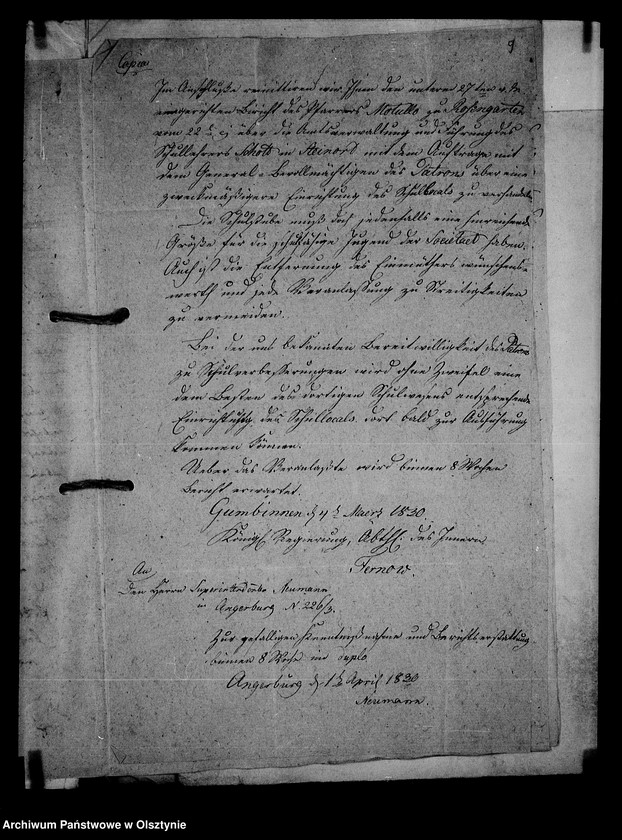 9
Copia
Im Anschlusse remittiren wir Ihnen den unterm 27ten v. M.
eingereichten Bericht des Pfarrers Motullo zu Rosengarten
vom 22t. ej über die Amtsverwaltung und Führung des
Schullehrers in Steinort mit dem Auftrage mit
dem General-Bevollmächtigen des Patrons über eine
zweckmäßigere Einrichtung des Schullocals zu verhandeln
Die Schulstube muß doch jedenfalls eine hinreichende
Größe für die schulfähige Jugend der Societaet haben.
Auch ist die Entfernung des Einmiethers wünschens-
werth und jede Veranlassung zu Streitigkeiten
zu vermeiden.
Bei der uns bekannten Bereitwilligkeit des Patrons
zu Schulverbesserungen wird ohne Zweifel eine
dem Besten des dortigen Schulwesens entsprechende
Einrichtung des Schullocals dort bald zur Ausführung
kommen können.
Ueber das Veranlaßte wird binnen 8 Wochen
Bericht erwartet.
Gumbinnen d 4t Maerz 1830.
Königl Regierung, Abthl. des Innern
Fernow.
An
den Herrn Superintendenten Neumann
in Angerburg N. 226/3.
Zur gefälligen Kenntnißnahme und Berichterstattung
binnen 8 Woche in duplo
Angerburg d 1t April 1830
Neumann.
Archiwum Państwowe w Olsztynie